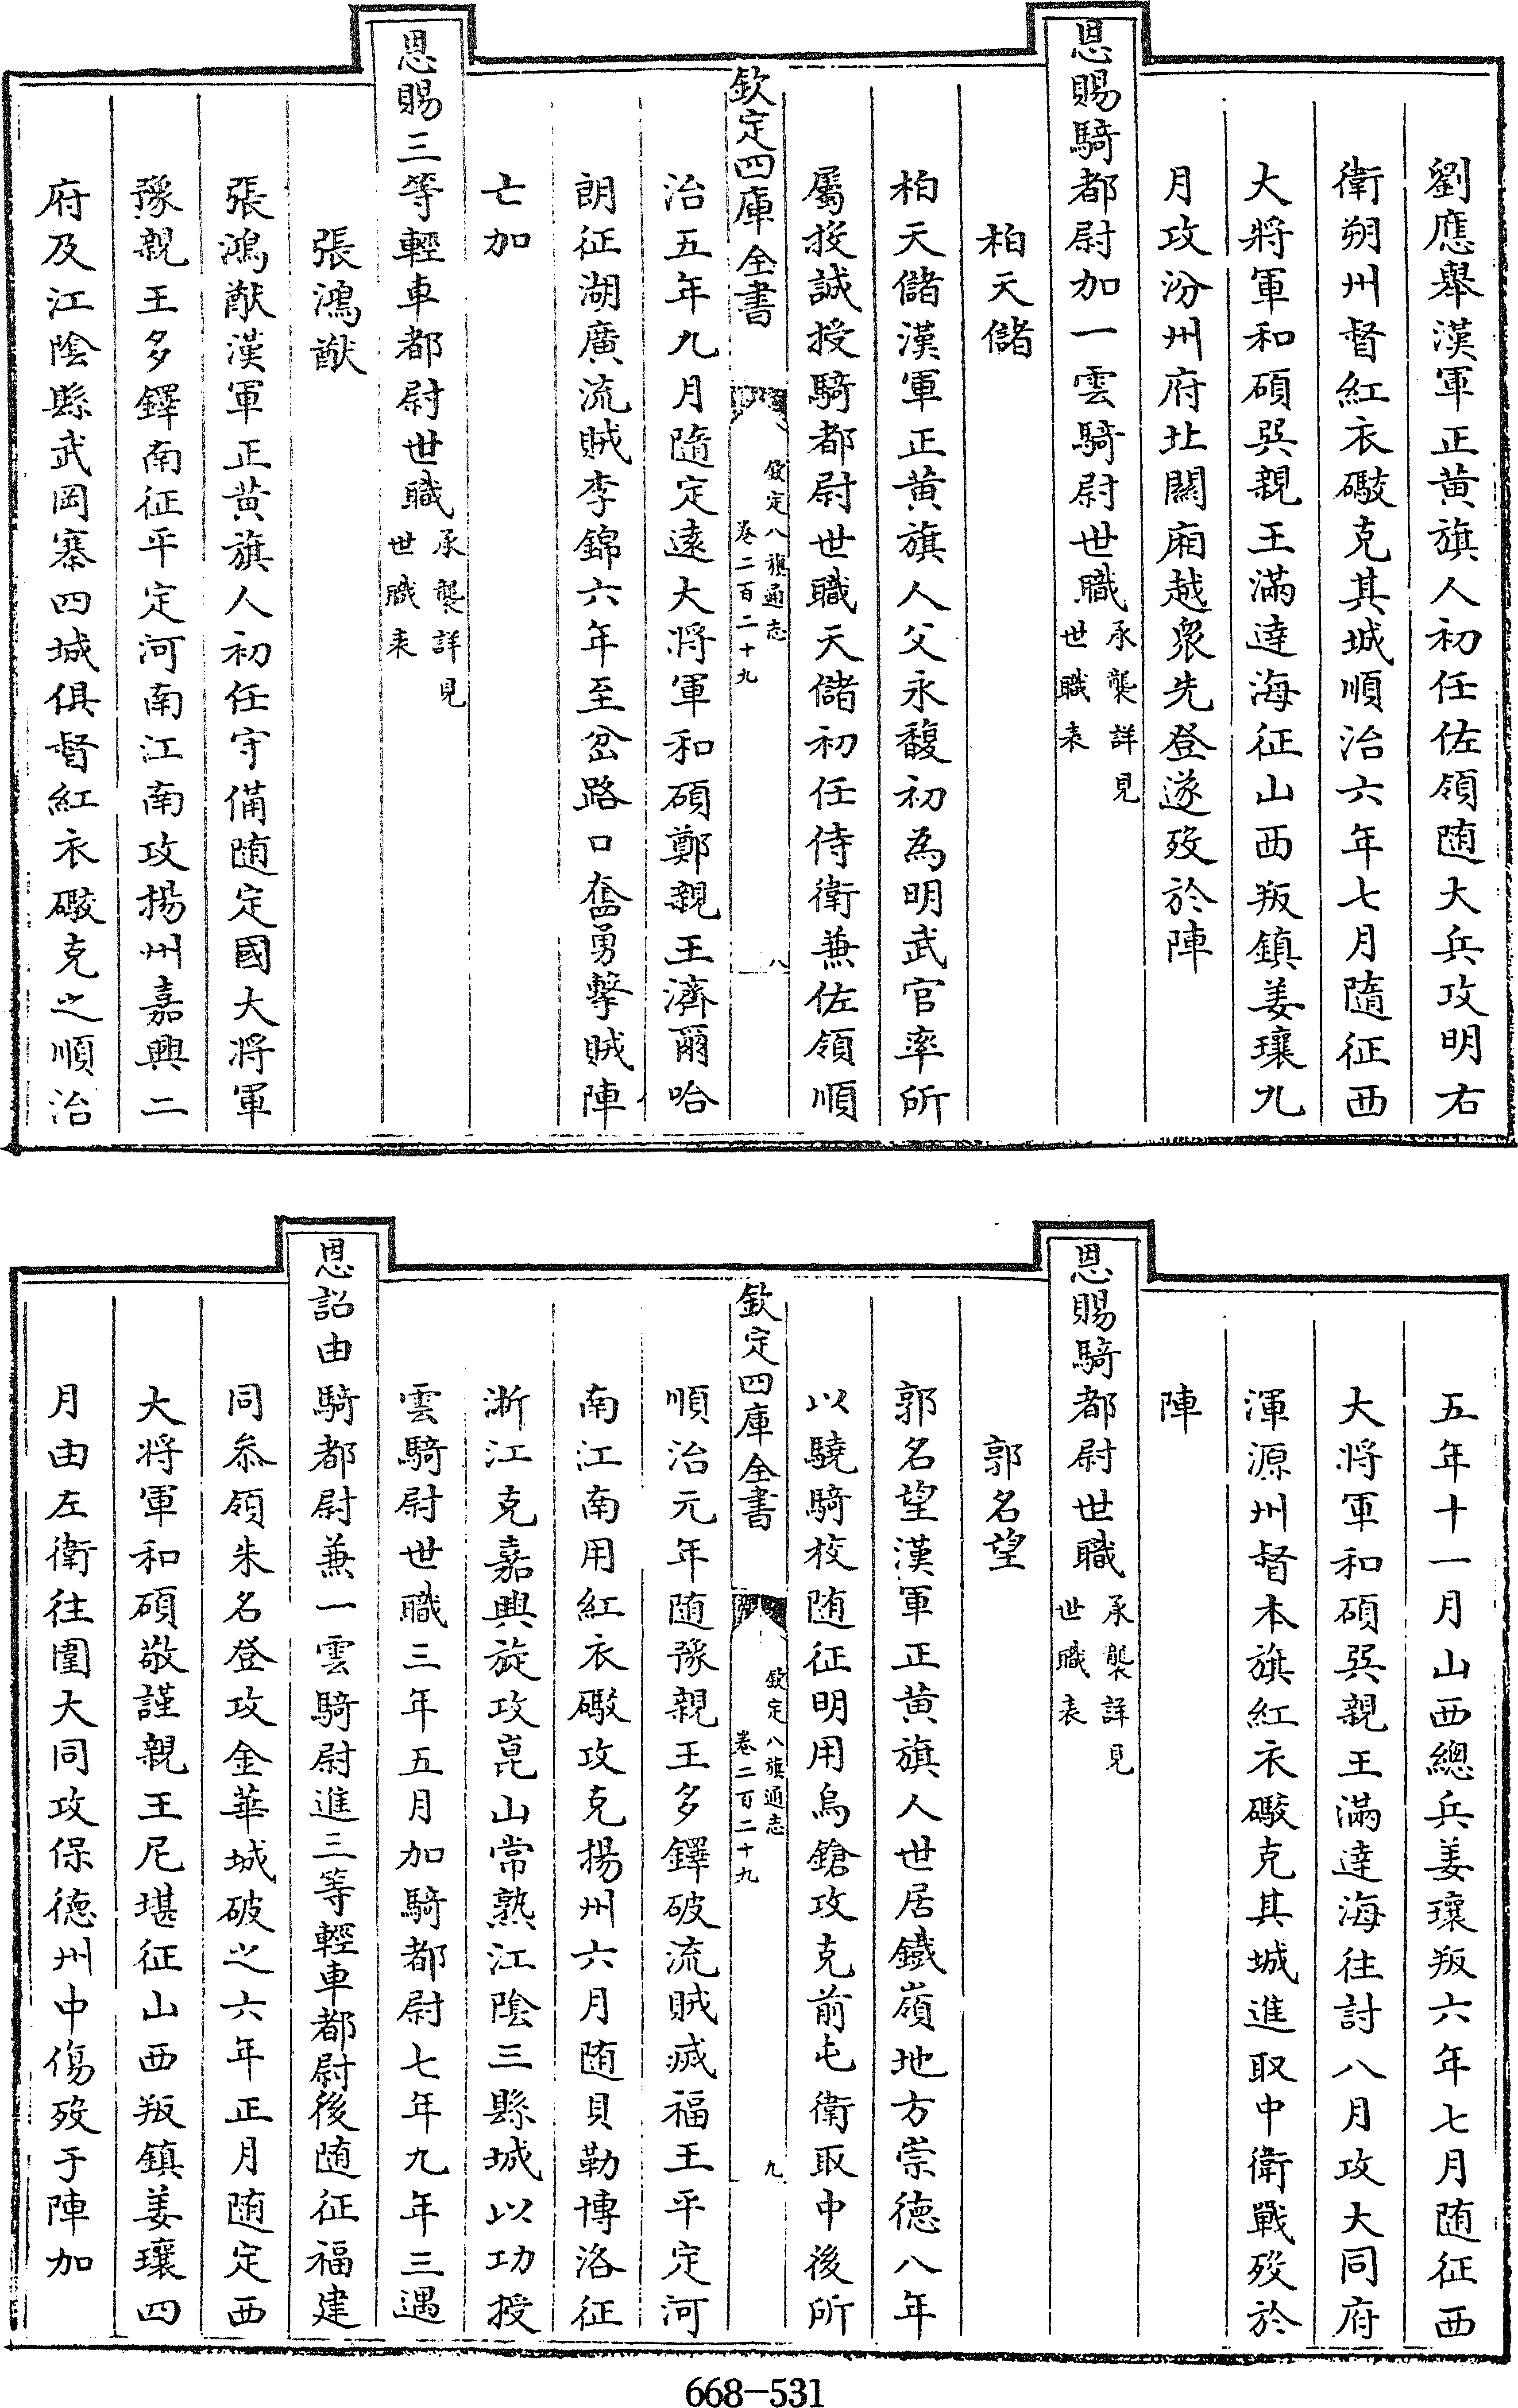 劉應舉漢軍正黃旗人初任佐領随大兵攻明右
衛朔州督紅衣礮克其城順治六年七月隨征西
大將軍和碩巽親王滿達海征山西叛鎮姜瓖九
月攻汾州府北關廂越衆先登遂歿於陣
恩賜騎都尉加一雲騎尉世職承襲詳見
世職表
柏天儲
柏天儲漢軍正黃旗人父永馥初為明武官率所
屬投誠授騎都尉世職天儲初任侍衛兼佐領順
欽定四庫全書
欽定八旗通志
卷二百二十九
八
治五年九月隨定遠大將軍和碩鄭親王濟爾哈
朗征湖廣流賊李錦六年至岔路口奮勇擊賊陣
亡加
恩賜三等輕車都尉世職承襲詳見
世職表
張鴻猷
張鴻猷漢軍正黃旗人初任守備随定國大將軍
豫親王多鐸南征平定河南江南攻揚州嘉興二
府及江陰縣武岡寨四城俱督紅衣礮克之順治
五年十一月山西總兵姜瓖叛六年七月随征西
大將軍和碩巽親王滿達海往討八月攻大同府
渾源州督本旗紅衣礮克其城進取中衛戰歿於
陣
恩賜騎都尉世職承襲詳見
世職表
郭名望
郭名望漢軍正黃旗人世居鐵嶺地方崇德八年
以驍騎校随征明用鳥鎗攻克前屯衛取中後所
欽定四庫全書
欽定八旗通志
卷二百二十九
九
順治元年随豫親王多鐸破流賊滅福王平定河
南江南用紅衣礮攻克揚州六月随貝勒博洛征
淅江克嘉興旋攻崑山常熟江陰三縣城以功授
雲騎尉世職三年五月加騎都尉七年九年三遇
恩詔由騎都尉兼一雲騎尉進三等輕車都尉後随征福建
同叅領朱名登攻金華城破之六年正月随定西
大將軍和碩敬謹親王尼堪征山西叛鎮姜瓖四
月由左衛往圍大同攻保德州中傷歿于陣加
668-531